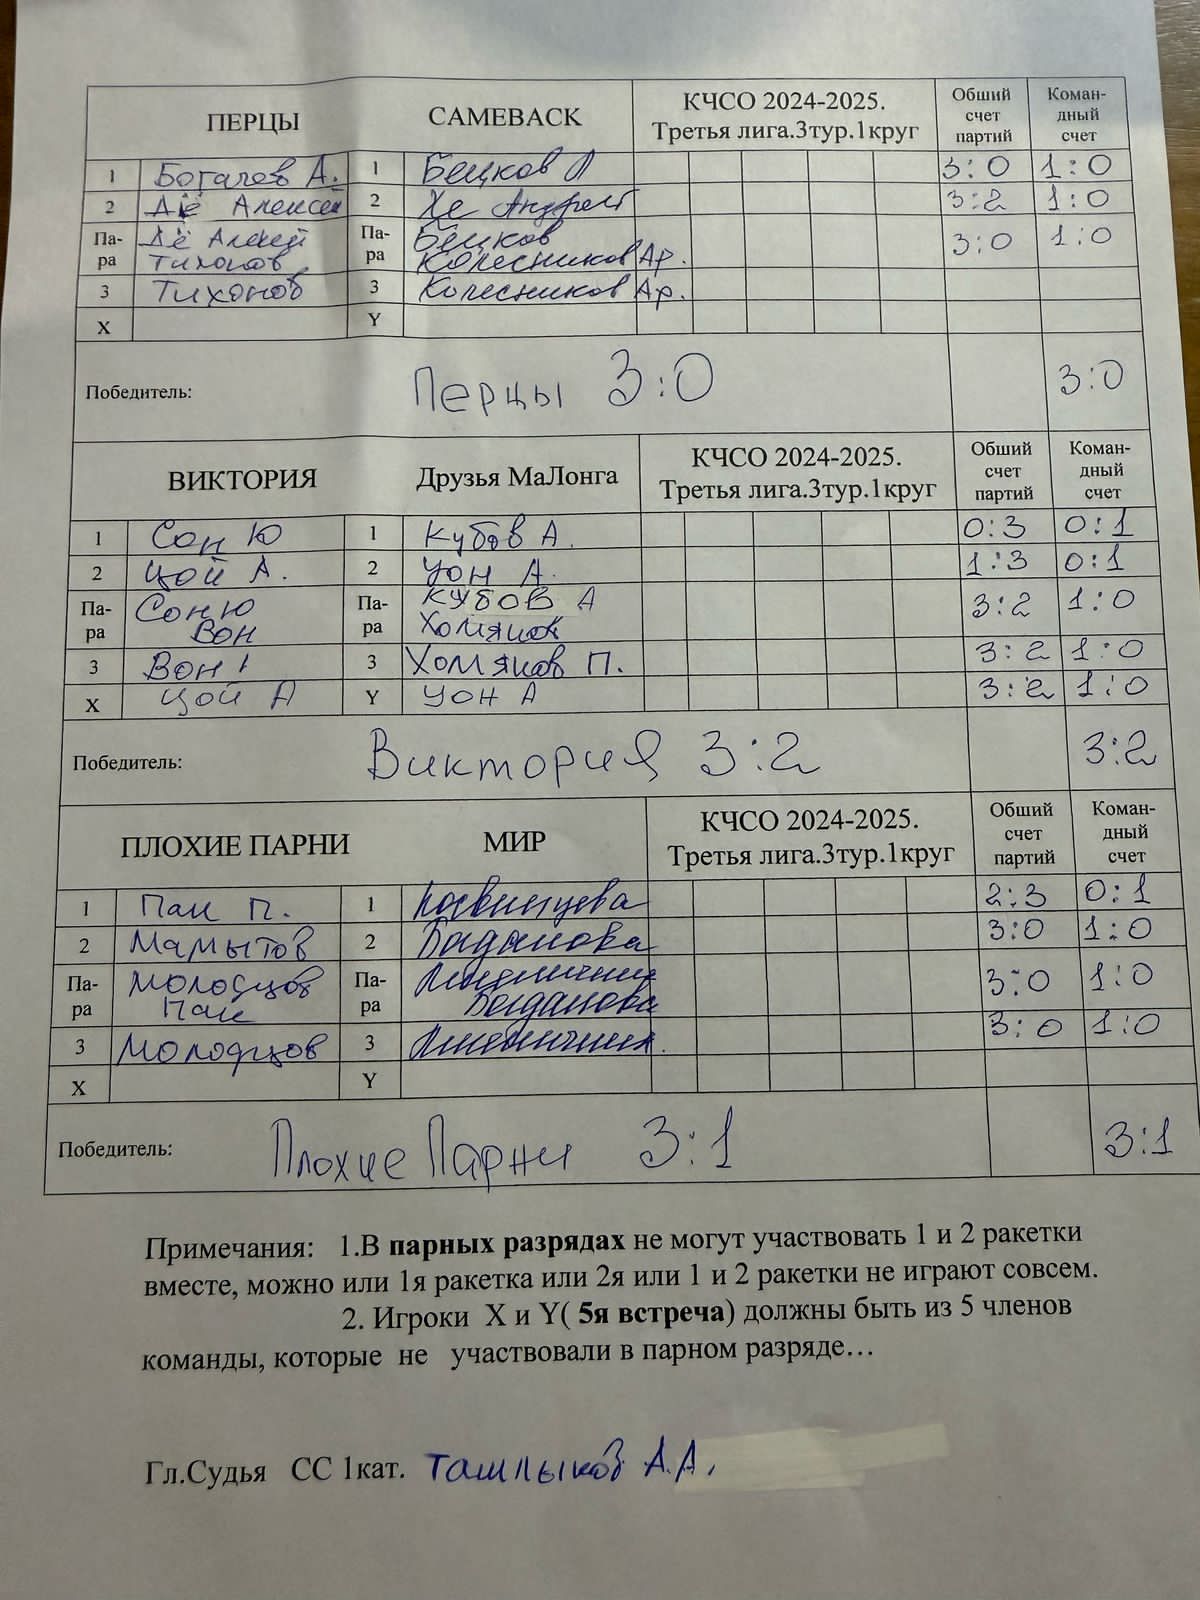 ПЕРЦЫ САМЕВАСК КЧСО 2024-2025. Третья лига.3тур.1круг Обший счет партий Коман-дный счет
1 Богачев А. 1 Бецков Л 3:0 1:0
2 Дё Алексей 2 Хе Андрей 3:2 1:0
Па-ра Дё Алексей Тихонов Па-ра Бецков Колесников Ар. 3:0 1:0
3 Тихонов 3 Колесников Ар.
X Y
Победитель: Перцы 3:0 3:0
ВИКТОРИЯ Друзья МаЛонга КЧСО 2024-2025. Третья лига.3тур.1круг Обший счет партий Коман-дный счет
1 Сон Ю 1 Кубов А. 0:3 0:1
2 Цой А. 2 Уон А. 1:3 0:1
Па-ра Сон Ю Вон Па-ра Кубов А Хомяков 3:2 1:0
3 Вон 3 Хомяков П. 3:2 1:0
X Цой А Y Уон А 3:2 1:0
Победитель: Виктория 3:2 3:2
ПЛОХИЕ ПАРНИ МИР КЧСО 2024-2025. Третья лига.3тур.1круг Обший счет партий Коман-дный счет
1 Пак П. 1 2:3 0:1
2 Мамытов 2 Богданова 3:0 1:0
Па-ра Молодцов Пак Па-ра Богданова 3:0 1:0
3 Молодцов 3 3:0 1:0
X Y
Победитель: Плохие Парни 3:1 3:1
Примечания: 1.В парных разрядах не могут участвовать 1 и 2 ракетки
вместе, можно или 1я ракетка или 2я или 1 и 2 ракетки не играют совсем.
2. Игроки X и Y( 5я встреча) должны быть из 5 членов
команды, которые не участвовали в парном разряде…
Гл.Судья СС 1кат. Ташлыков А.А.